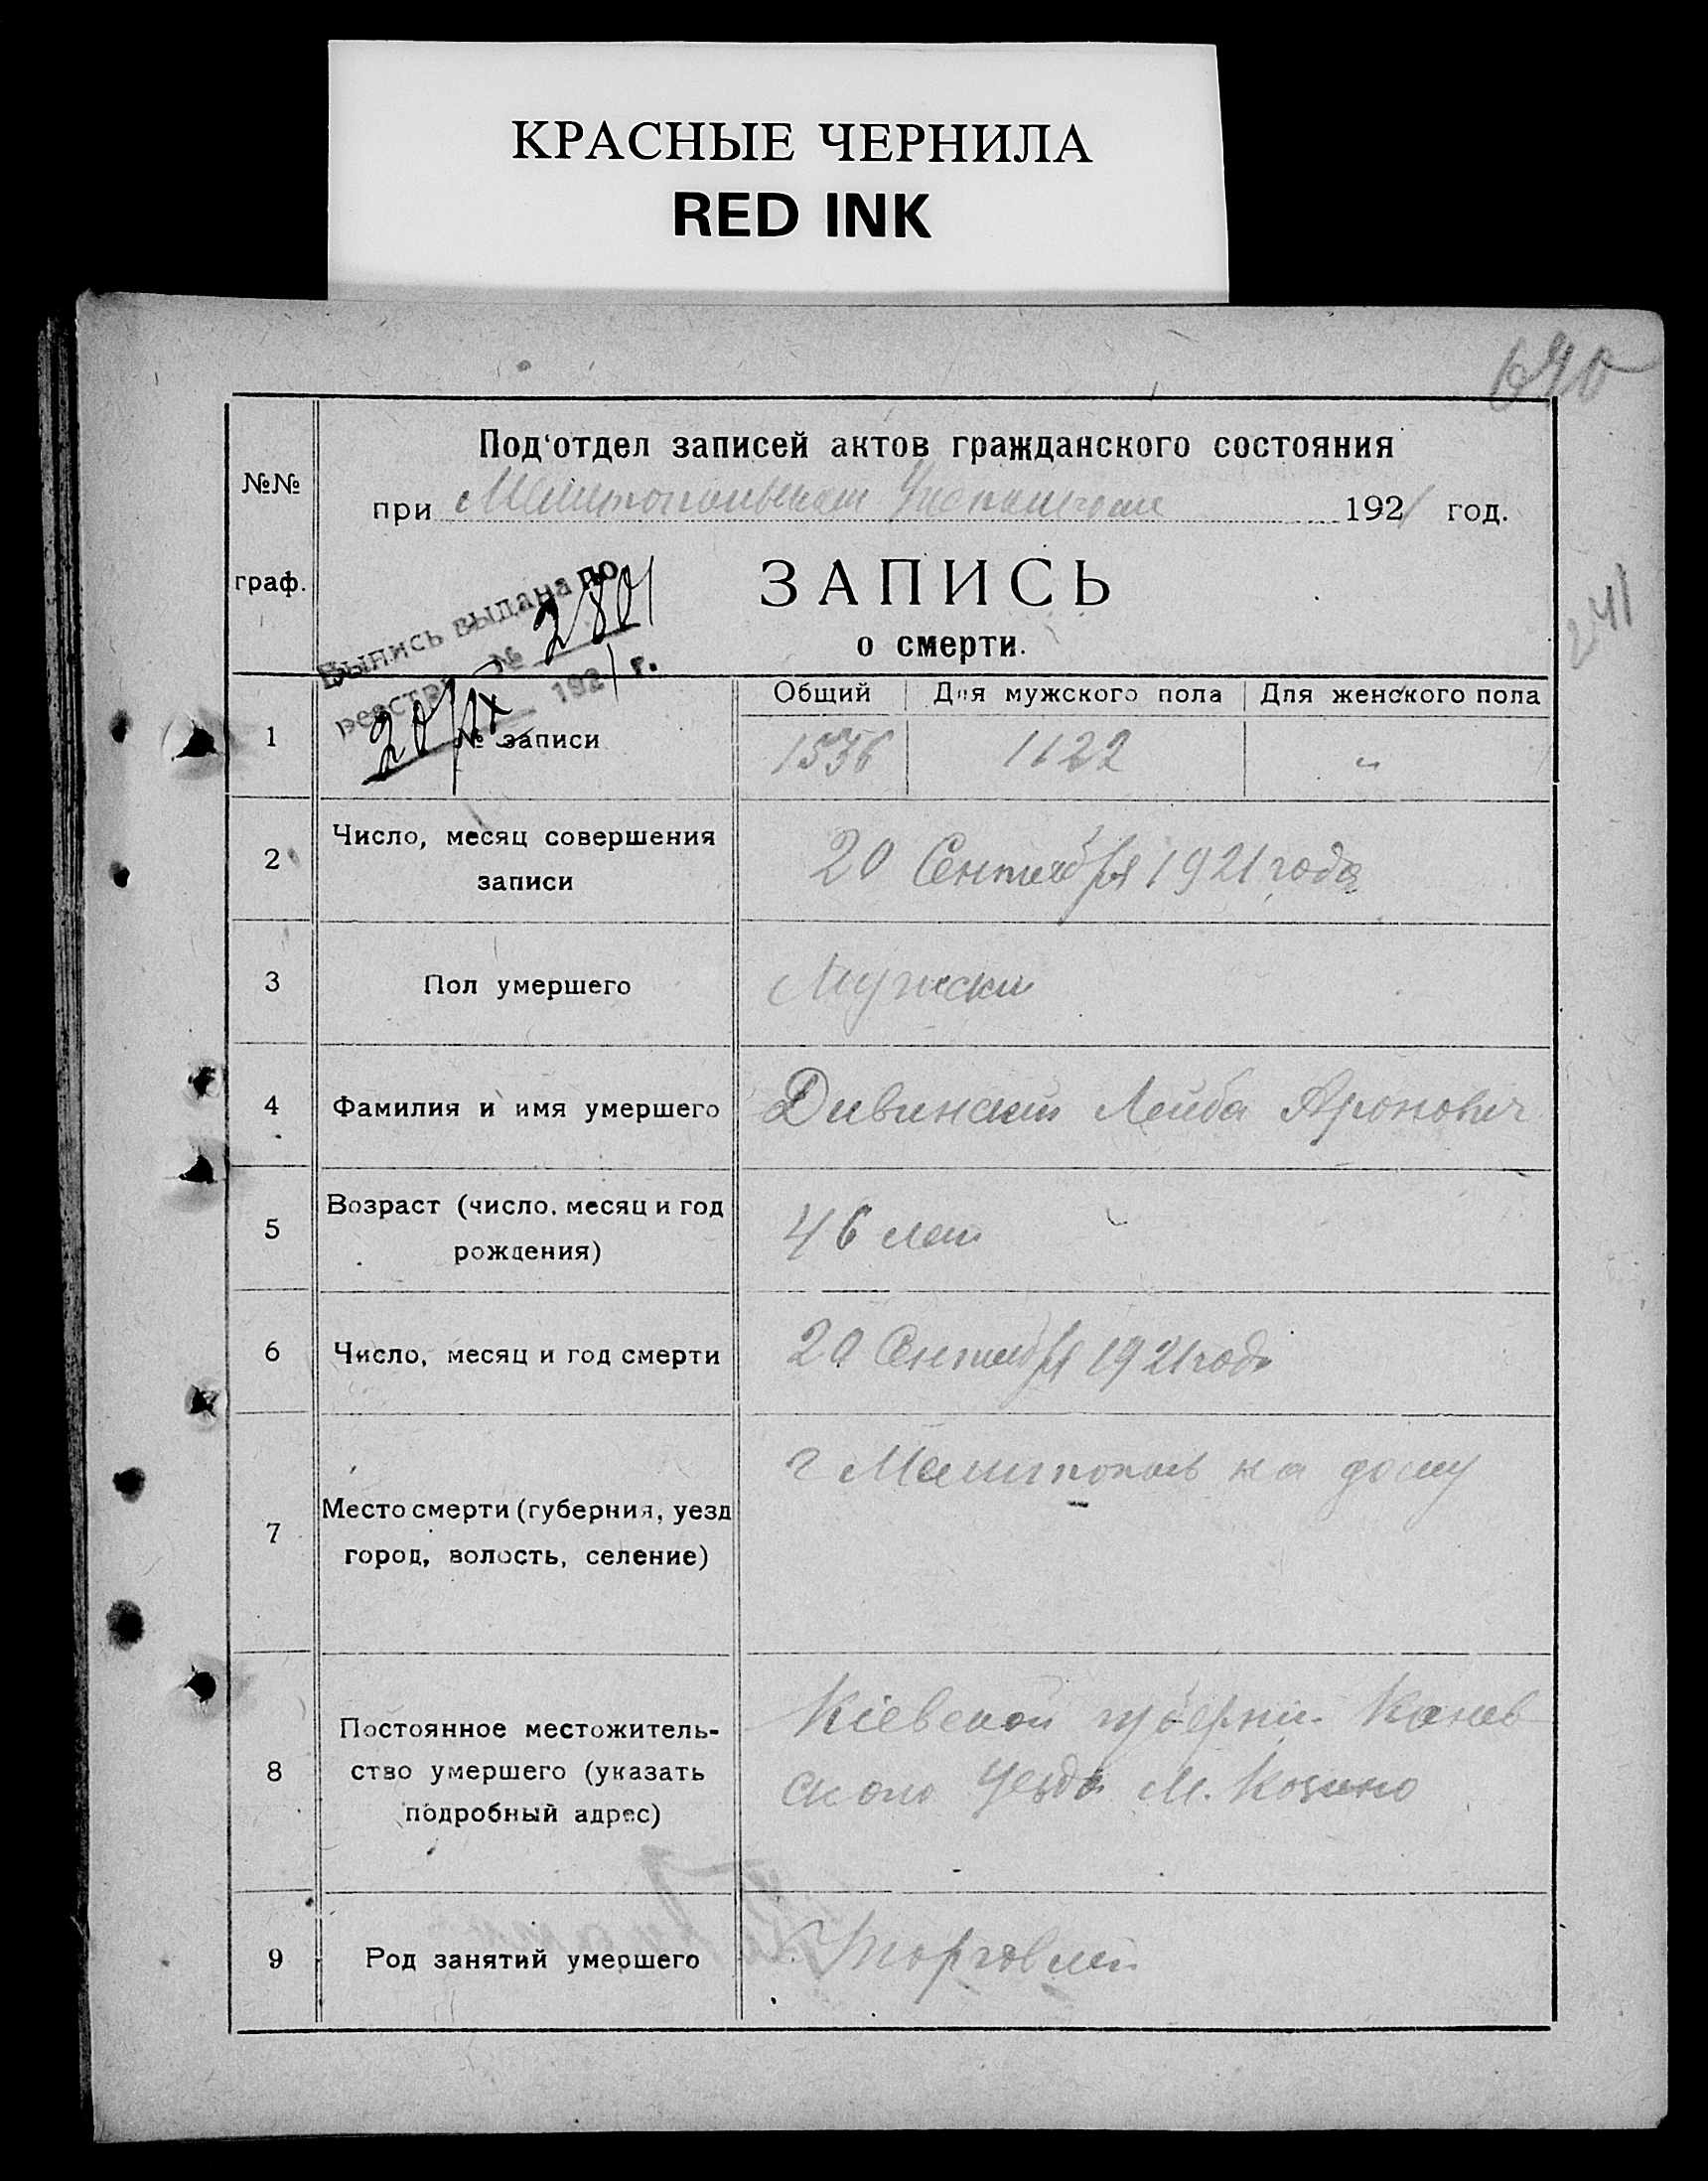 КРАСНЫЕ ЧЕРНИЛА
RED INK
№№
граф.
Под'отдел записей актов гражданского состояния
при Мелитопольском 1921 год.
ЗАПИСЬ
о смерти.
Выпись выдана по
реестру № 2801
20/IX 1921 г.
Общий Для мужского пола Для женского пола
1 № записи 1536 1122 "
2 Число, месяц совершения
записи
20 Сентября 1921 года
3 Пол умершего Мужски
4 Фамилия и имя умершего Дивинский Лейба Аронович
5 Возраст (число, месяц и год
рождения)
46 лет
6 Число, месяц и год смерти 20 Сентября 1921 года
7 Место смерти (губерния, уезд
город, волость, селение)
г Мелитополь на дому
8 Постоянное местожитель-
ство умершего (указать
подробный адрес)
Кіевской губерни Канев
ского Уезда М. Козино
9 Род занятий умершего Торговли
241